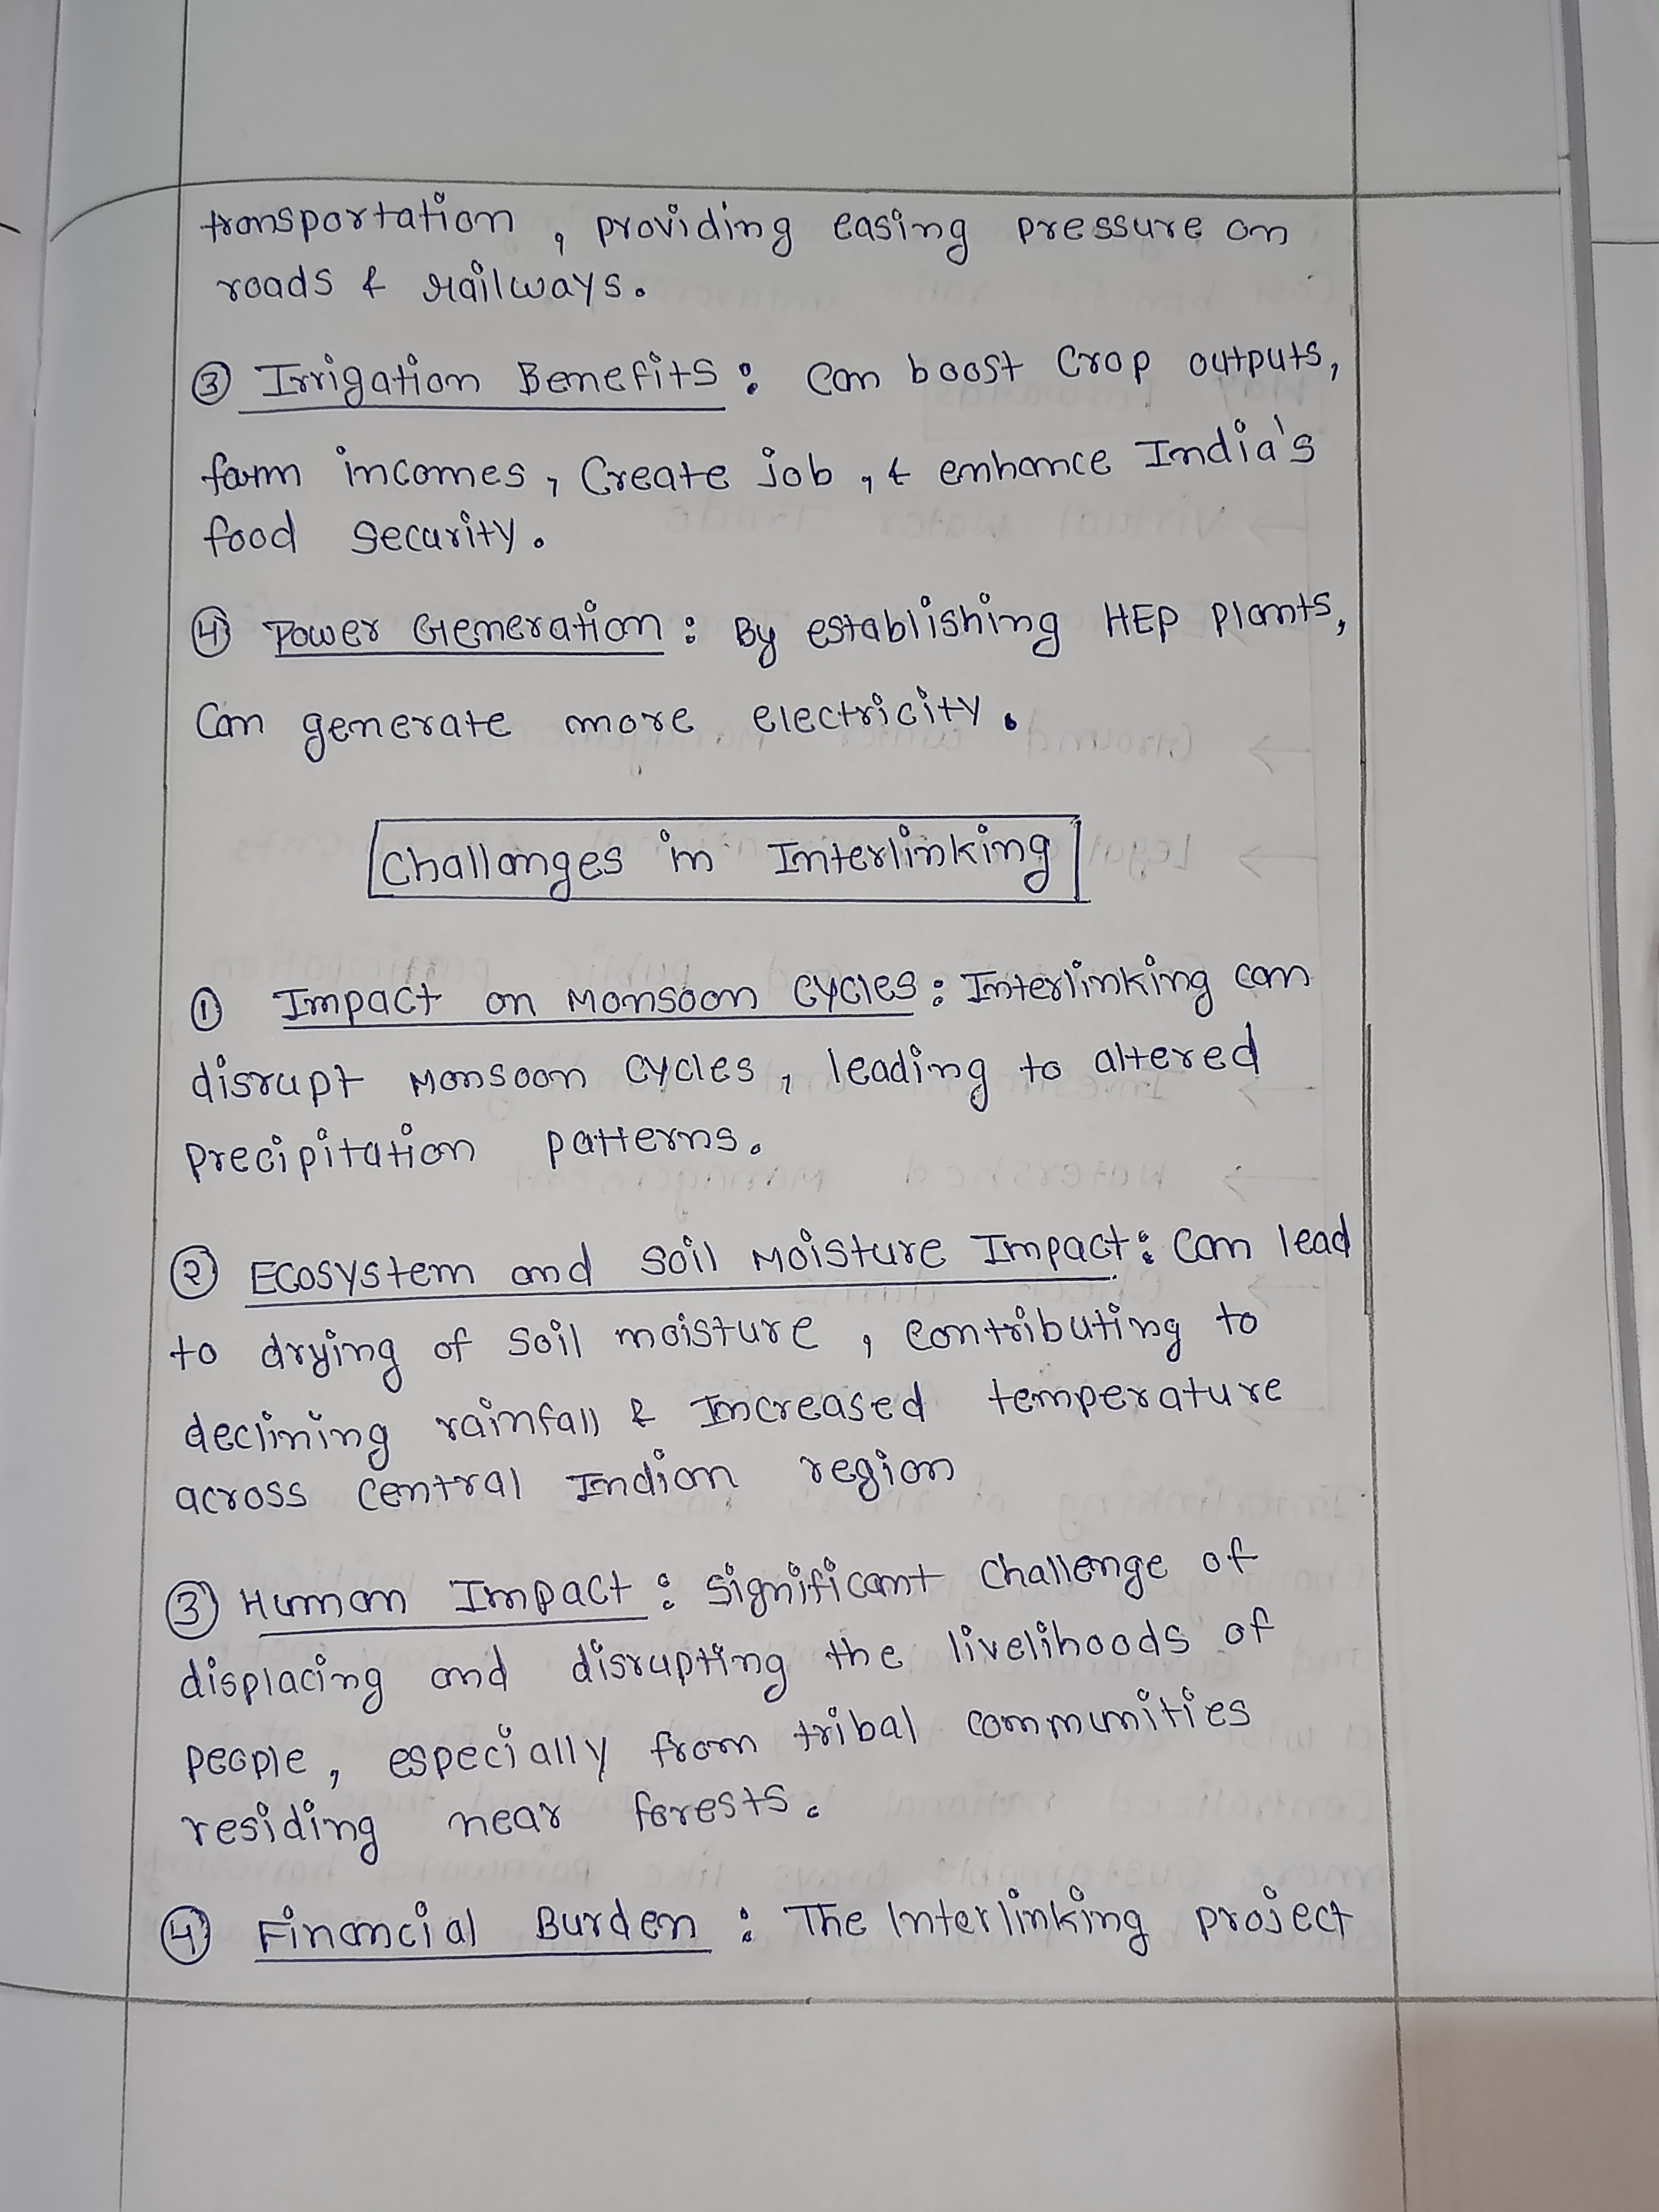 transportation, providing easing pressure on
roads & railways.
③ Irrigation Benefits: Can boost crop outputs,
farm incomes, Create job, & enhance India's
food security.
④ Power Generation: By establishing HEP plants,
Can generate more electricity.
Challanges in Interlinking
① Impact on Monsoon Cycles: Interlinking can
disrupt Monsoon cycles, leading to altered
Precipitation patterns.
② Ecosystem and Soil Moisture Impact: Can lead
to drying of soil moisture, contributing to
declining rainfall & Increased temperature
across Central Indian region
③ Human Impact: Significant Challenge of
displacing and disrupting the livelihoods of
people, especially from tribal communities
residing near forests.
④ Financial Burden: The Interlinking project